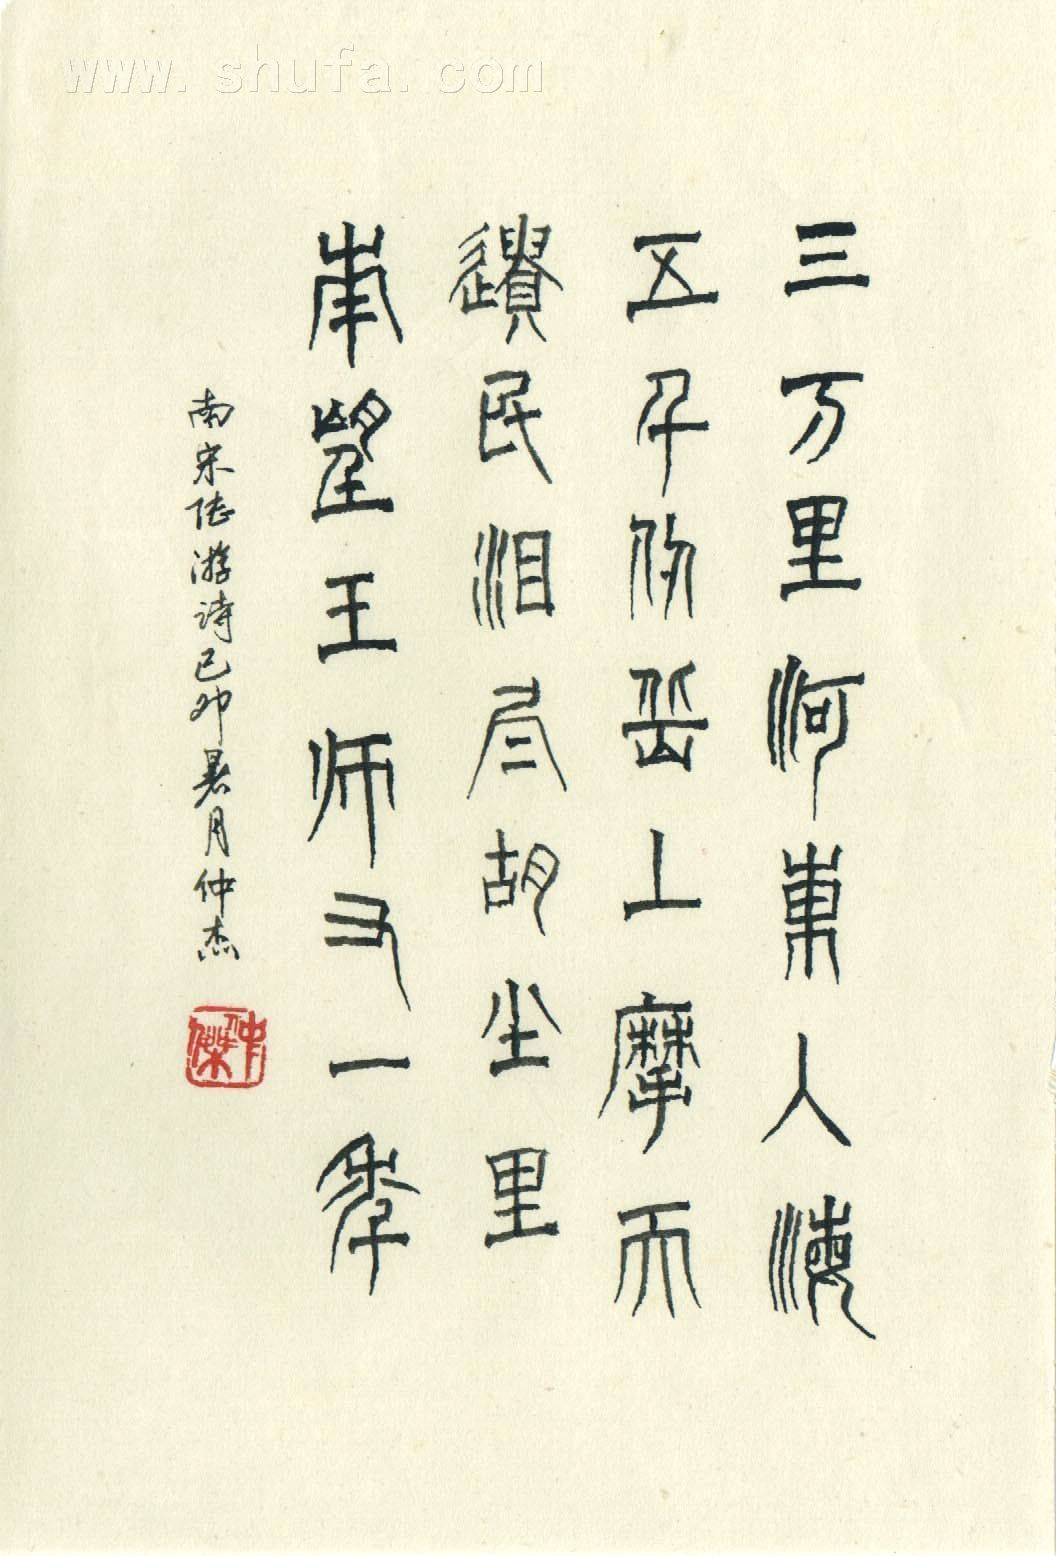 www.shufa.com
三万里河東入海
五千仞岳上摩天
遺民泪尽胡尘里
南望王师又一年
南宋陆游诗己卯暑月仲杰
仲傑